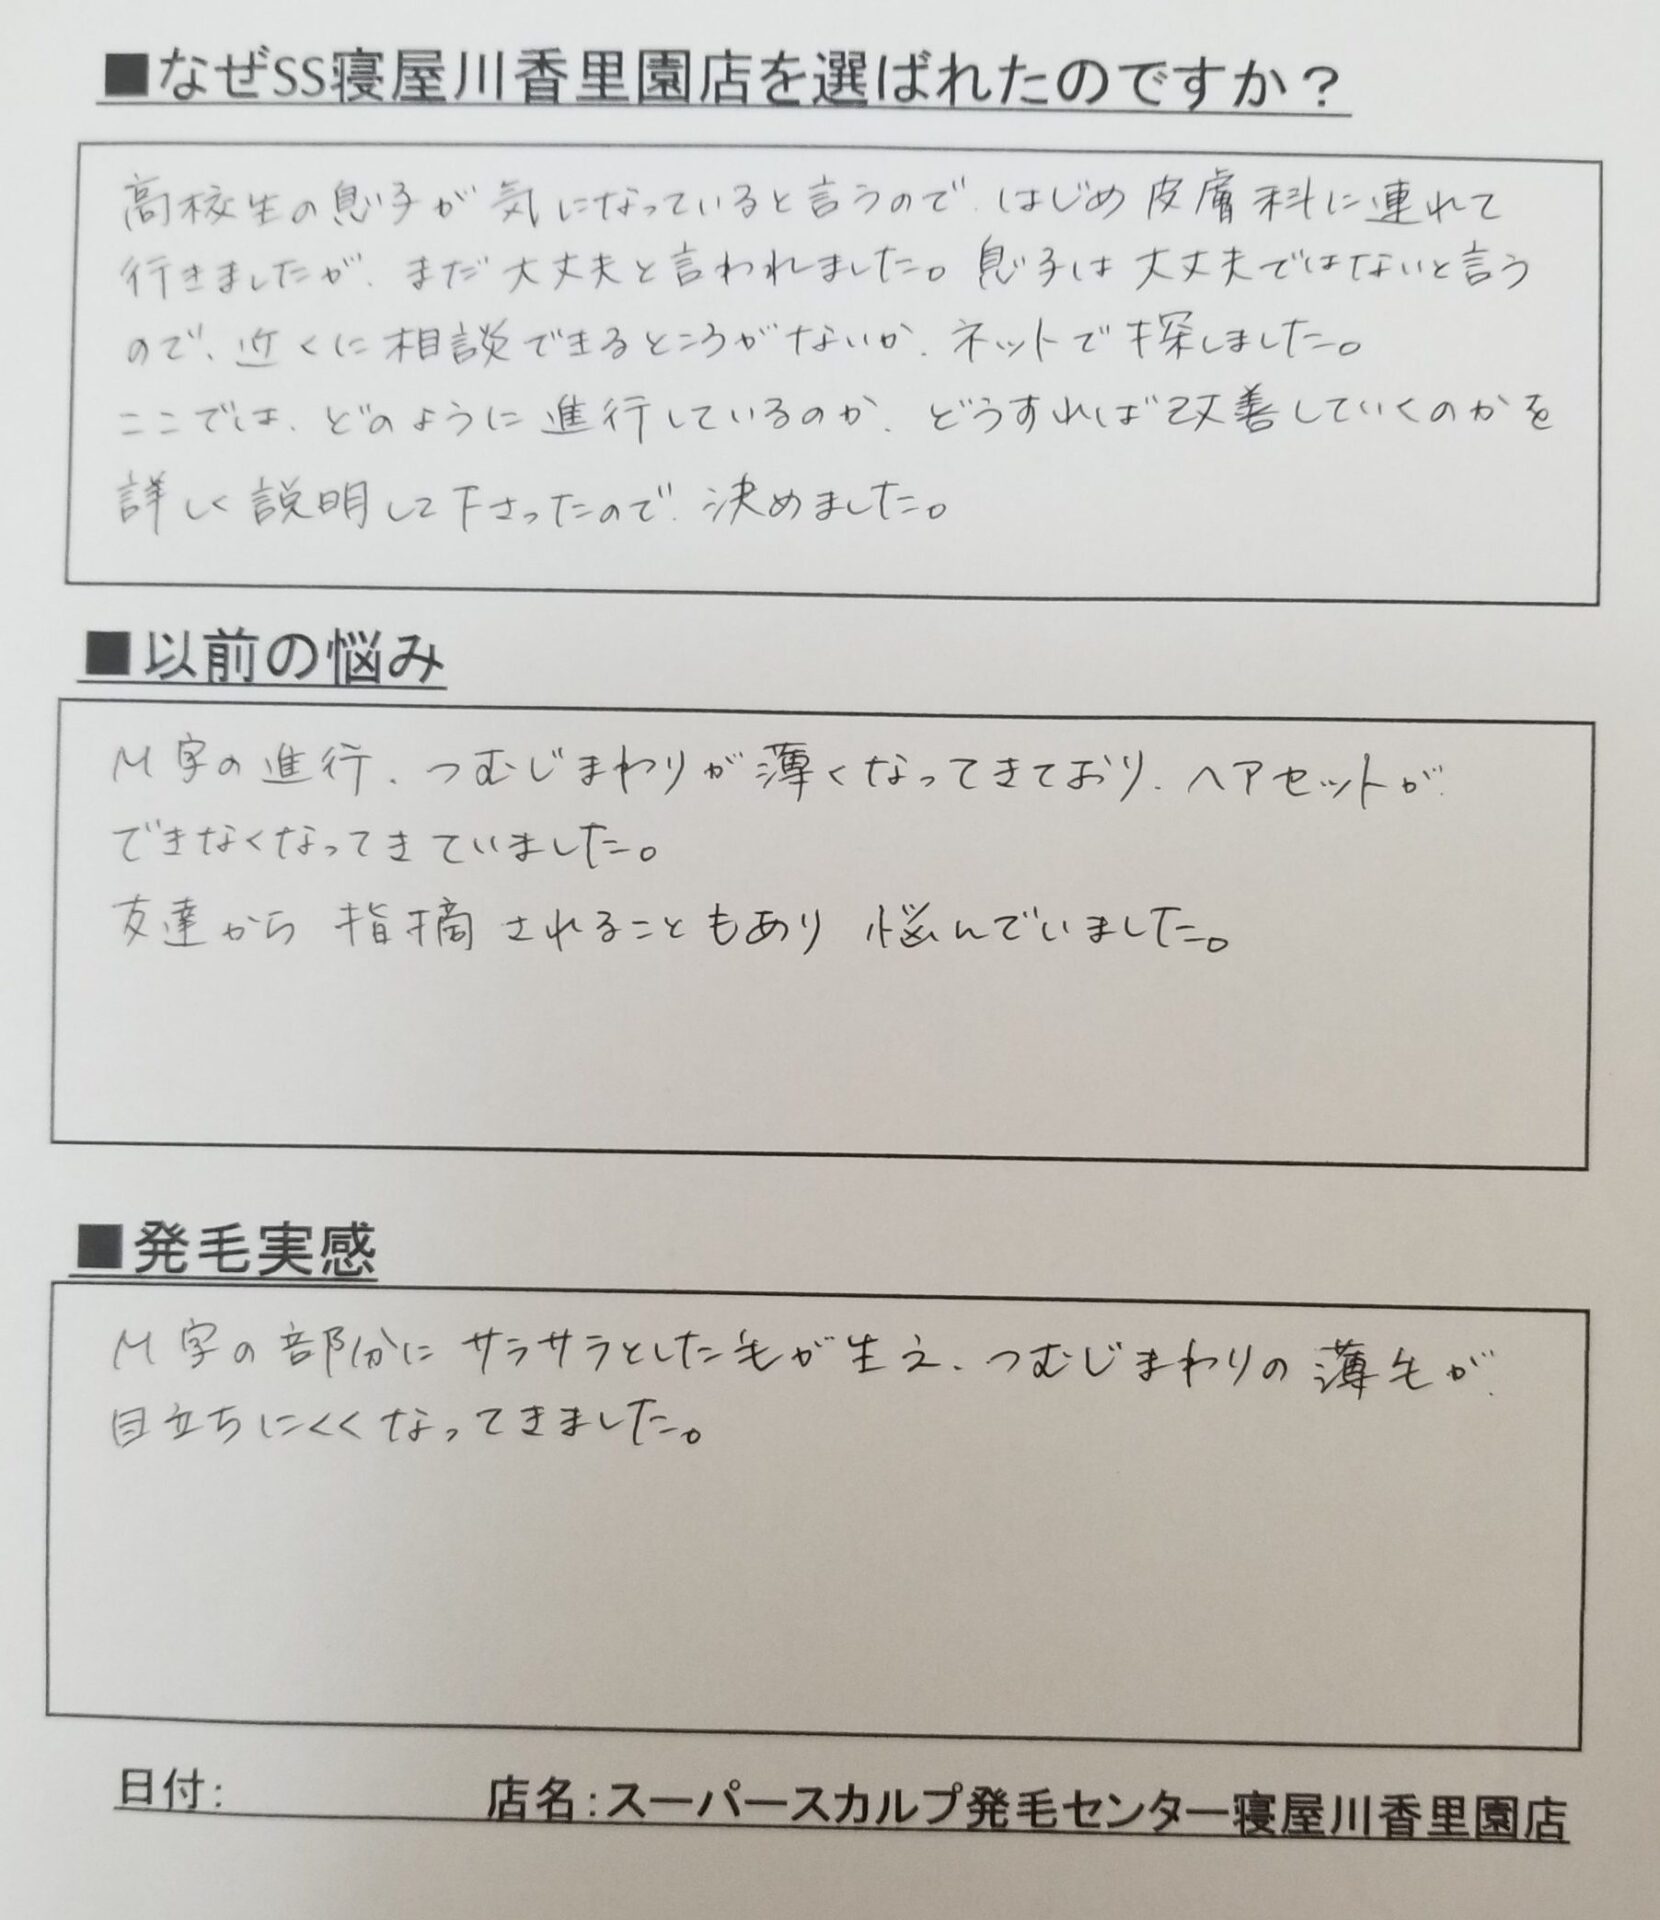 ■なぜSS寝屋川香里園店を選ばれたのですか？
高校生の息子が気になっていると言うので、はじめ皮膚科に連れて
行きましたが、まだ大丈夫と言われました。息子は大丈夫ではないと言う
ので、近くに相談できるところがないか、ネットで探しました。
ここでは、どのように進行しているのか、どうすれば改善していくのかを
詳しく説明して下さったので、決めました。
■以前の悩み
M字の進行、つむじまわりが薄くなってきており、ヘアセットが
できなくなってきていました。
友達から指摘されることもあり悩んでいました。
■発毛実感
M字の部分にサラサラとした毛が生え、つむじまわりの薄毛が、
目立ちにくくなってきました。
日付: 店名:スーパースカルプ発毛センター寝屋川香里園店